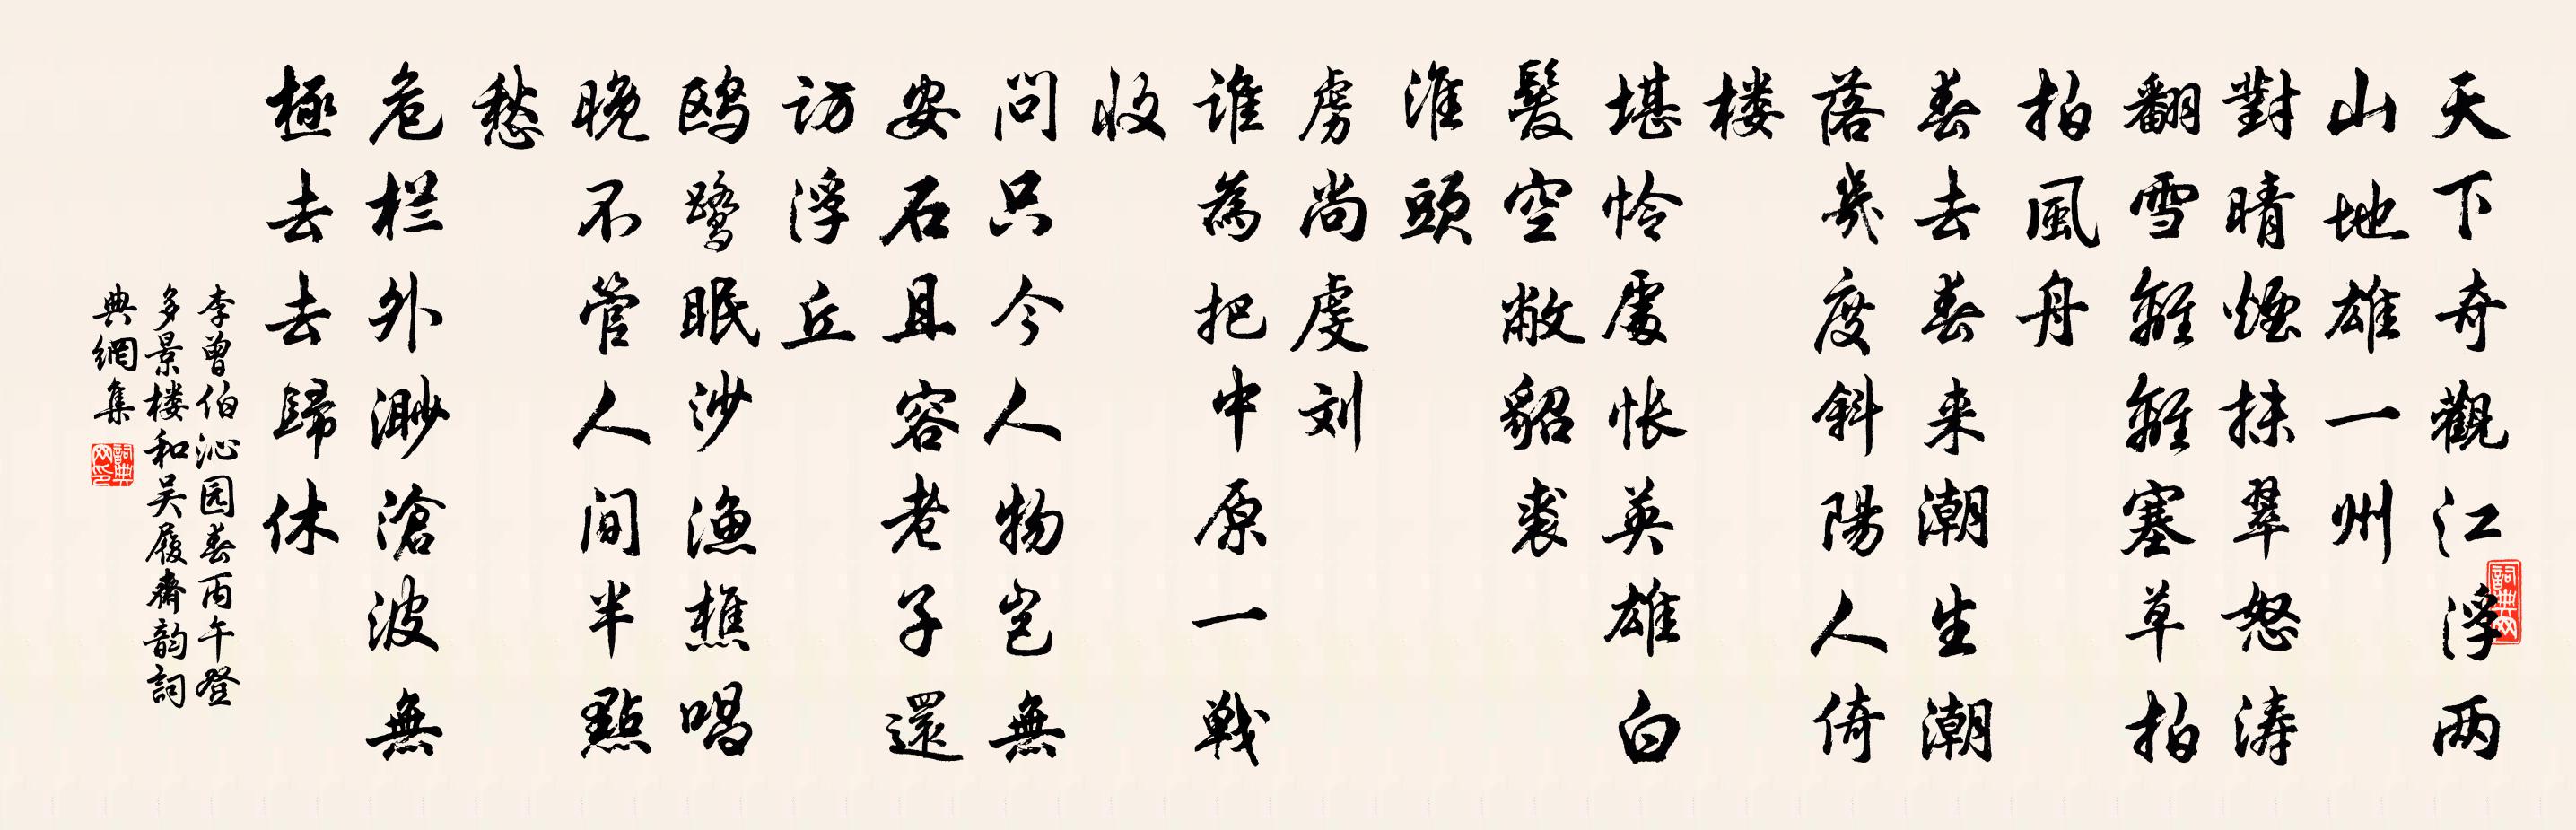 天下奇觀江浮两
山地雄一州
對晴煙抹翠怒涛
翻雪離離塞草拍
拍風舟
春去春来潮生潮
落幾度斜陽人倚
楼
堪怜處怅英雄白
髮空敝貂裘
淮頭
虏尚虔刘
谁為把中原一戦
收
问只今人物岂無
安石且容老子還
访浮丘
鸥鹭眠沙渔樵唱
晚不管人间半點
愁
危栏外渺滄波無
極去去歸休
李曾伯沁园春丙午登
多景楼和吴履齋韵詞
典網集
詞典网
詞典网